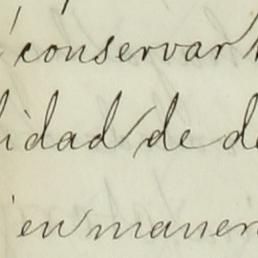 conservar
lidad de de
en maner